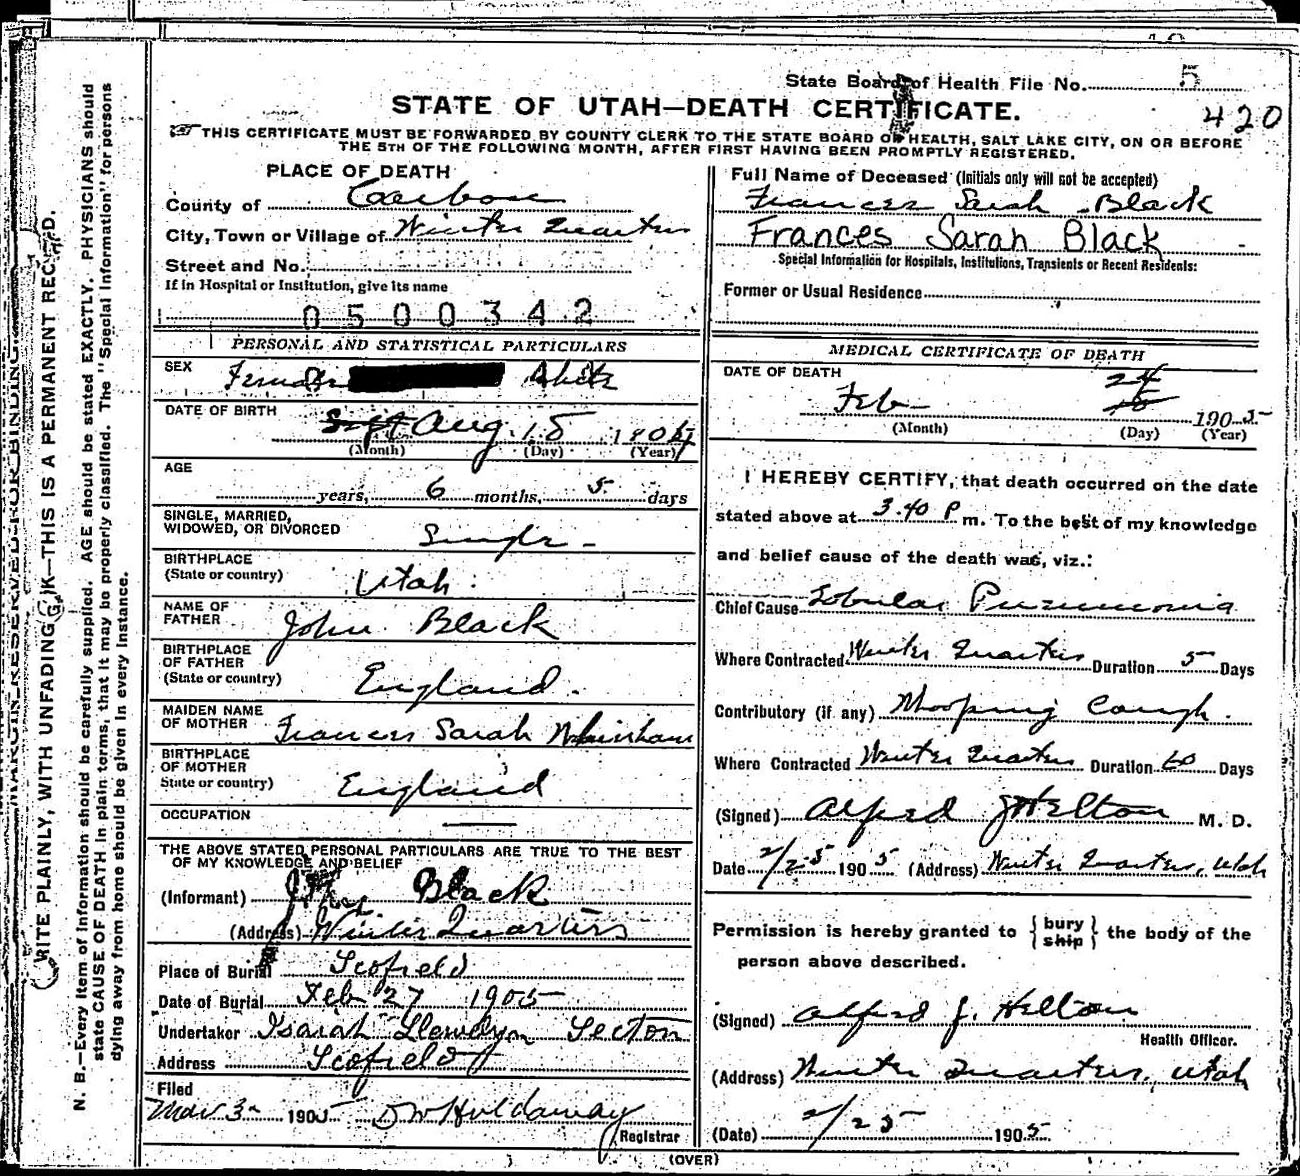 State Board of Health File No. 5
420
STATE OF UTAH—DEATH CERTIFICATE.
THIS CERTIFICATE MUST BE FORWARDED BY COUNTY CLERK TO THE STATE BOARD OF HEALTH, SALT LAKE CITY, ON OR BEFORE
THE 5TH OF THE FOLLOWING MONTH, AFTER FIRST HAVING BEEN PROMPTLY REGISTERED.
PLACE OF DEATH
County of Carbon
City, Town or Village of Winter Quarters
Street and No.
If in Hospital or Institution, give its name
0500342
PERSONAL AND STATISTICAL PARTICULARS
SEX Female White
DATE OF BIRTH Sept Aug. 18 1904
(Month) (Day) (Year)
AGE
years, 6 months, 5 days
SINGLE, MARRIED,
WIDOWED, OR DIVORCED Single -
BIRTHPLACE
(State or country) Utah.
NAME OF
FATHER John Black
BIRTHPLACE
OF FATHER
(State or country) England.
MAIDEN NAME
OF MOTHER Frances Sarah
BIRTHPLACE
OF MOTHER
State or country) England
OCCUPATION
THE ABOVE STATED PERSONAL PARTICULARS ARE TRUE TO THE BEST
OF MY KNOWLEDGE AND BELIEF
(Informant) Black
(Address) Winter Quarters
Place of Burial Scofield
Date of Burial Feb 27 1905
Undertaker Isaiah Llewelyn Secton
Address Scofield
Filed
Mar 3 1905 D W Holdaway
Registrar
Full Name of Deceased (Initials only will not be accepted)
Frances Sarah Black
Frances Sarah Black
Special Information for Hospitals, Institutions, Transients or Recent Residents:
Former or Usual Residence
MEDICAL CERTIFICATE OF DEATH
DATE OF DEATH
Feb 24 1905
(Month) (Day) (Year)
I HEREBY CERTIFY, that death occurred on the date
stated above at 3.40 P m. To the best of my knowledge
and belief cause of the death was, viz.:
Chief Cause Lobular Pneumonia
Where Contracted Winter Quarters Duration 5 Days
Contributory (if any) Whooping Cough.
Where Contracted Winter Quarters Duration 60 Days
(Signed) Alfred J Helton M. D.
Date 2/25 1905 (Address) Winter Quarters, Utah
Permission is hereby granted to { bury ship } the body of the
person above described.
(Signed) Alfred J. Helton
Health Officer.
(Address) Winter Quarters, Utah
(Date) 2/25 1905.
(OVER)
MARGIN RESERVED FOR BINDING.
WRITE PLAINLY, WITH UNFADING INK—THIS IS A PERMANENT RECORD.
N. B.—Every item of information should be carefully supplied. AGE should be stated EXACTLY. PHYSICIANS should
state CAUSE OF DEATH in plain terms, that it may be properly classified. The "Special Information" for persons
dying away from home should be given in every instance.